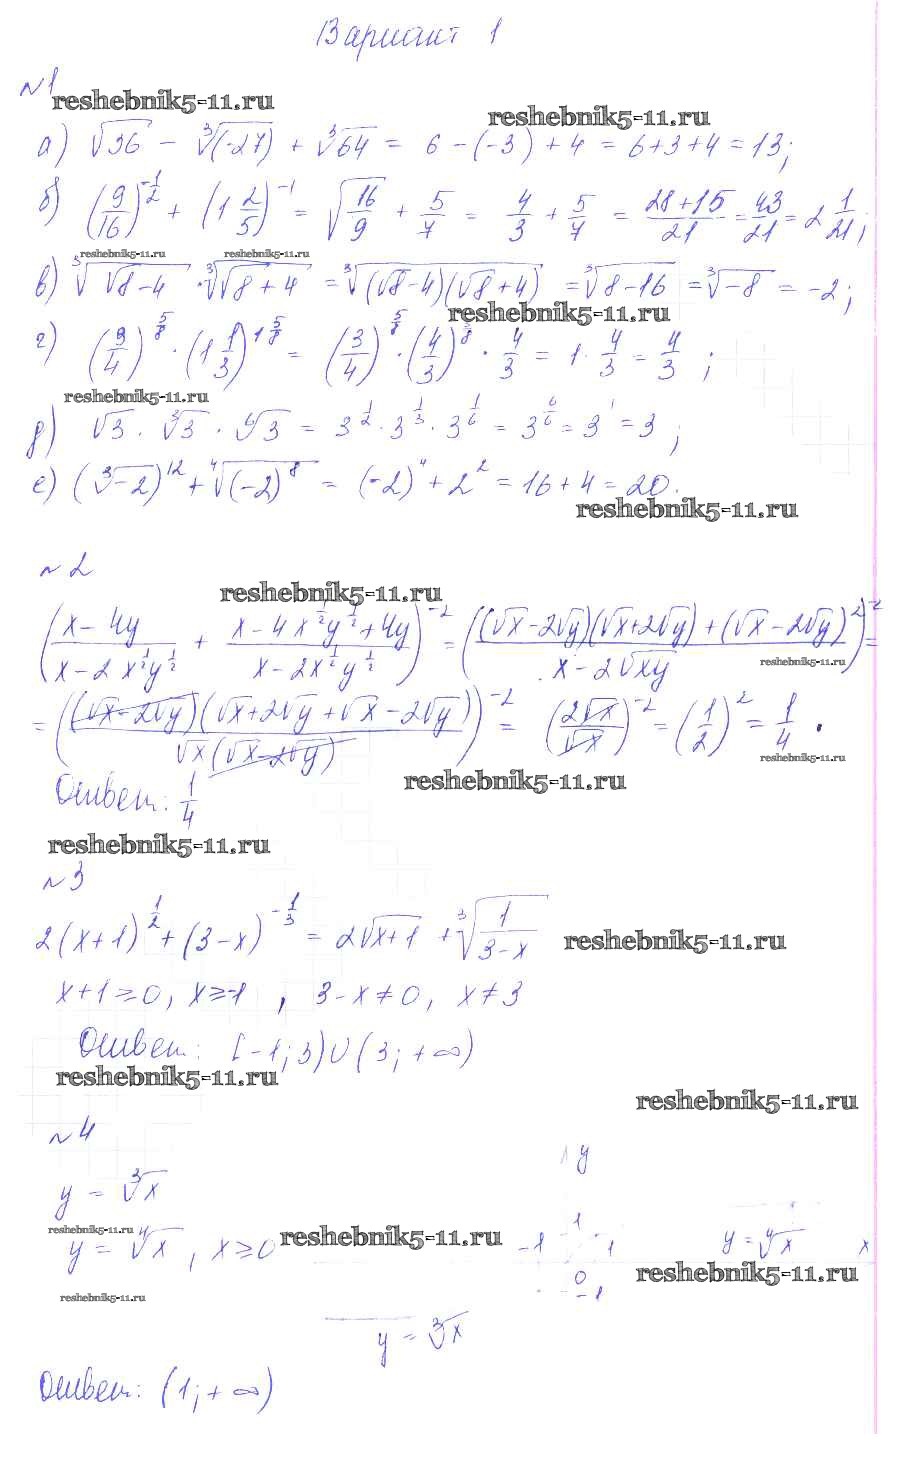 Вариант 1
№1
reshebnik5-11.ru
reshebnik5-11.ru
а) √36 − ∛(-27) + ∛64 = 6 − (-3) + 4 = 6+3+4 = 13;
б) (9/16)^(-1/2) + (1 2/5)^(-1) = √(16/9) + 5/7 = 4/3 + 5/7 = (28+15)/21 = 43/21 = 2 1/21;
reshebnik5-11.ru reshebnik5-11.ru
в) ∛(√8−4) · ∛(√8+4) = ∛((√8−4)(√8+4)) = ∛(8−16) = ∛(−8) = −2;
reshebnik5-11.ru
г) (3/4)^(5/8) · (1 1/3)^(1 5/8) = (3/4)^(5/8) · (4/3)^(5/8) · 4/3 = 1 · 4/3 = 4/3;
reshebnik5-11.ru
д) √3 · ∛3 · ⁶√3 = 3^(1/2) · 3^(1/3) · 3^(1/6) = 3^(6/6) = 3^1 = 3;
е) (∛−2)^12 + ⁴√(−2)^8 = (−2)^4 + 2^2 = 16+4 = 20.
reshebnik5-11.ru
№2
reshebnik5-11.ru
((x−4y)/(x−2x^(1/2)y^(1/2)) + (x−4x^(1/2)y^(1/2)+4y)/(x−2x^(1/2)y^(1/2)))^(-2) = (((√x−2√y)(√x+2√y)+(√x−2√y)^2)/(x−2√xy))^(-2) =
reshebnik5-11.ru
= (((√x−2√y)(√x+2√y+√x−2√y))/(√x(√x−2√y)))^(-2) = (2√x/√x)^(-2) = (1/2)^2 = 1/4.
reshebnik5-11.ru
reshebnik5-11.ru
Ответ: 1/4
reshebnik5-11.ru
№3
2(x+1)^(1/2) + (3−x)^(-1/3) = 2√(x+1) + ∛(1/(3−x))
reshebnik5-11.ru
x+1≥0, x≥-1, 3−x≠0, x≠3
Ответ: [−1; 3)∪(3; +∞)
reshebnik5-11.ru
reshebnik5-11.ru
№4
y
y = ∛x
1
reshebnik5-11.ru
y = ⁴√x, x≥0
reshebnik5-11.ru
−1 1
y = ⁴√x x
0
reshebnik5-11.ru
−1
reshebnik5-11.ru
y = ∛x
Ответ: (1; +∞)